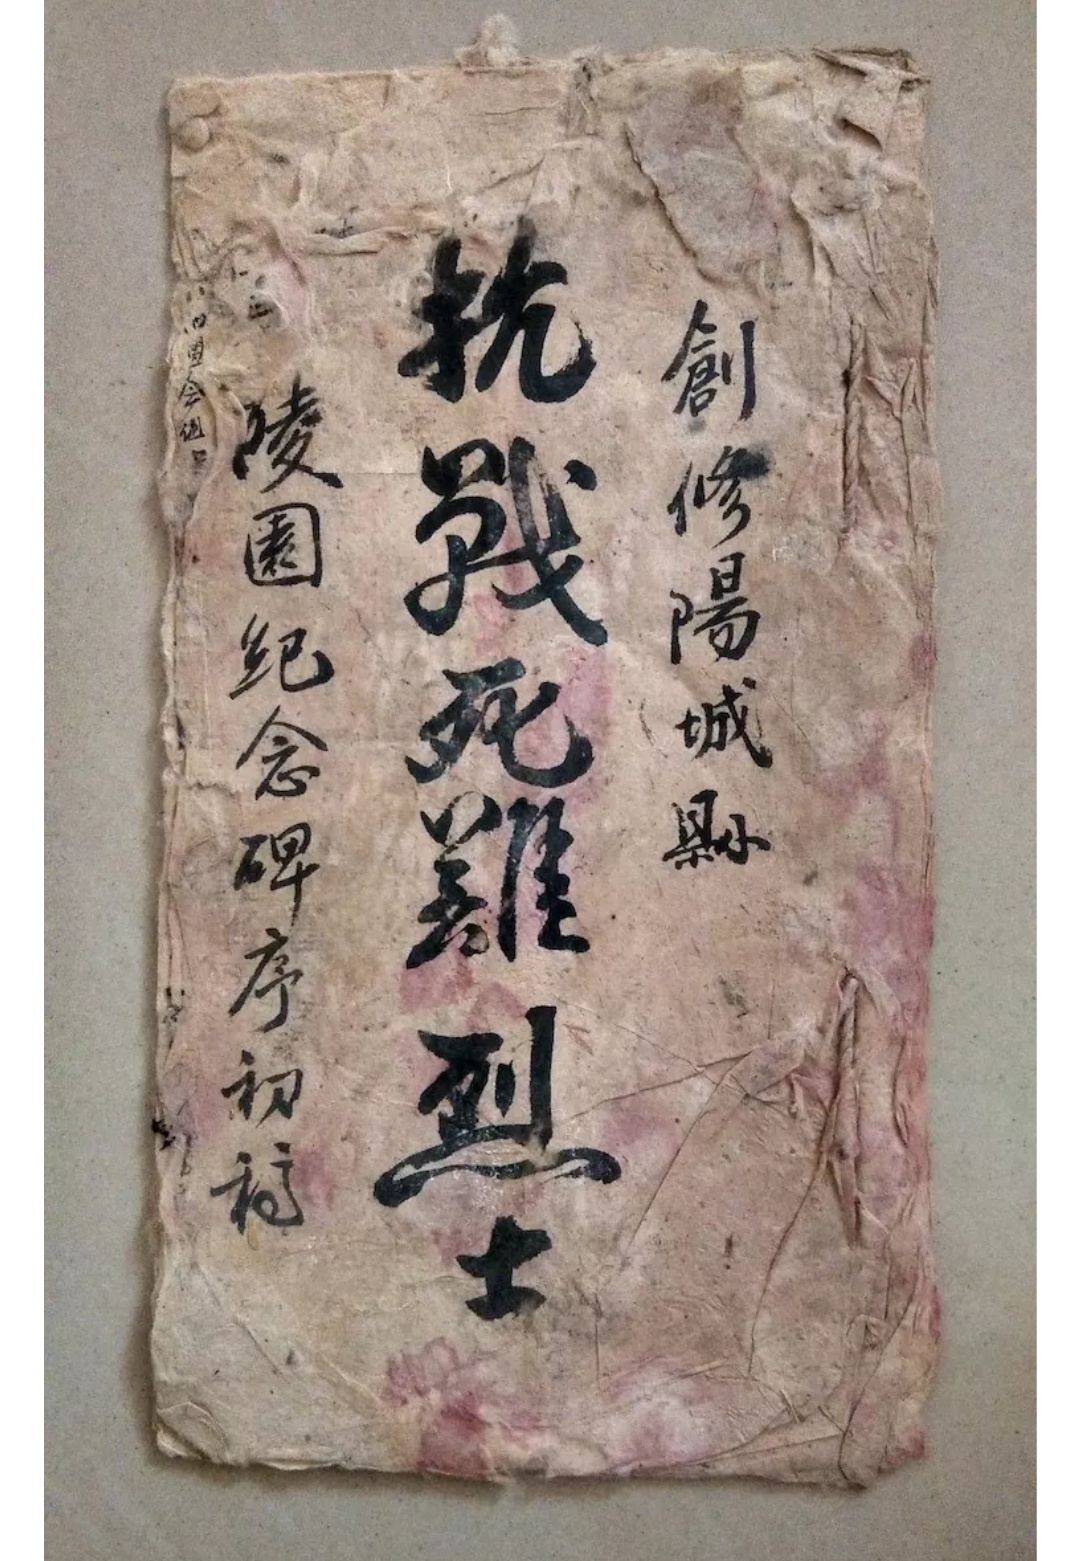 創修陽城縣
抗戰死難烈士
陵園紀念碑序初稿